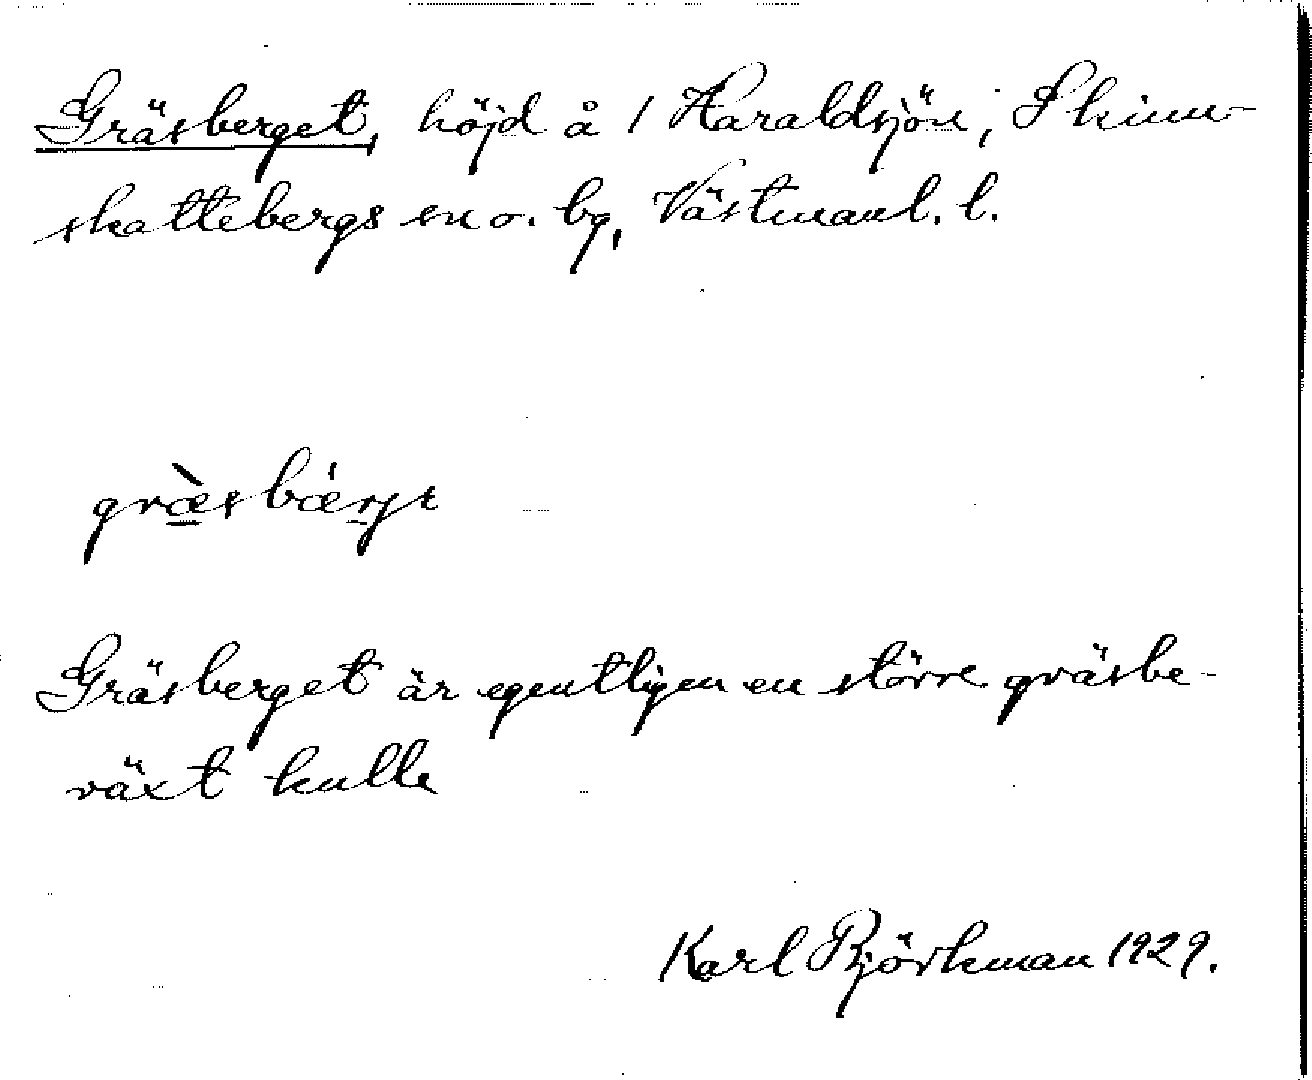 Gräsberget, höjd å 1 Haraldsjön, Skinn-
skattebergs sn o. bg, Västmanl. l.
græ̀sbærjt
Gräsberget är egentligen en större gräsbe-
växt kulle
Karl Björkman 1929.